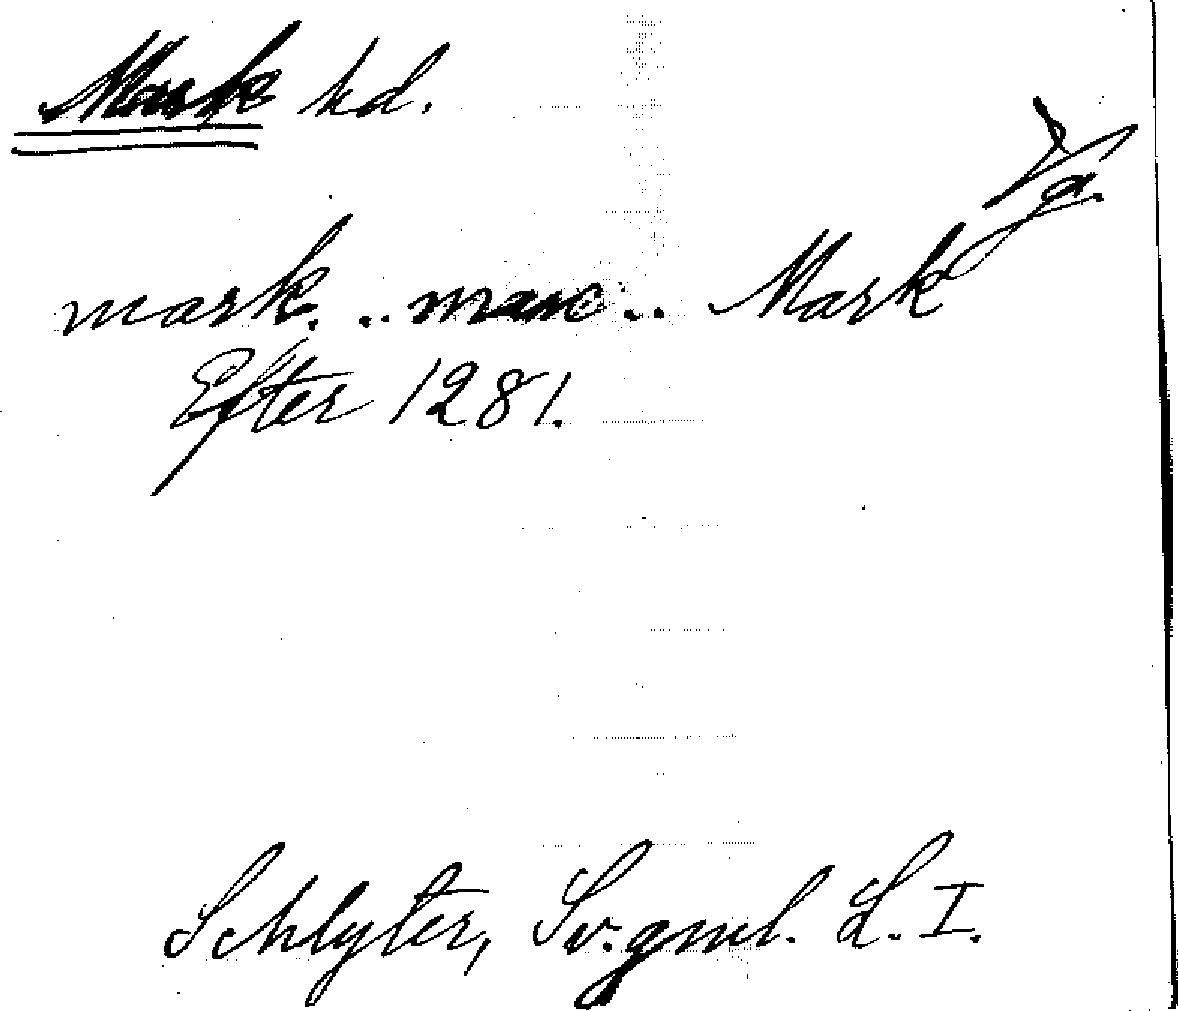 Mark hd.
Vg.
mark. .. marc .. Mark
Efter 1281.
Schlyter, Sv. gml. L. I.